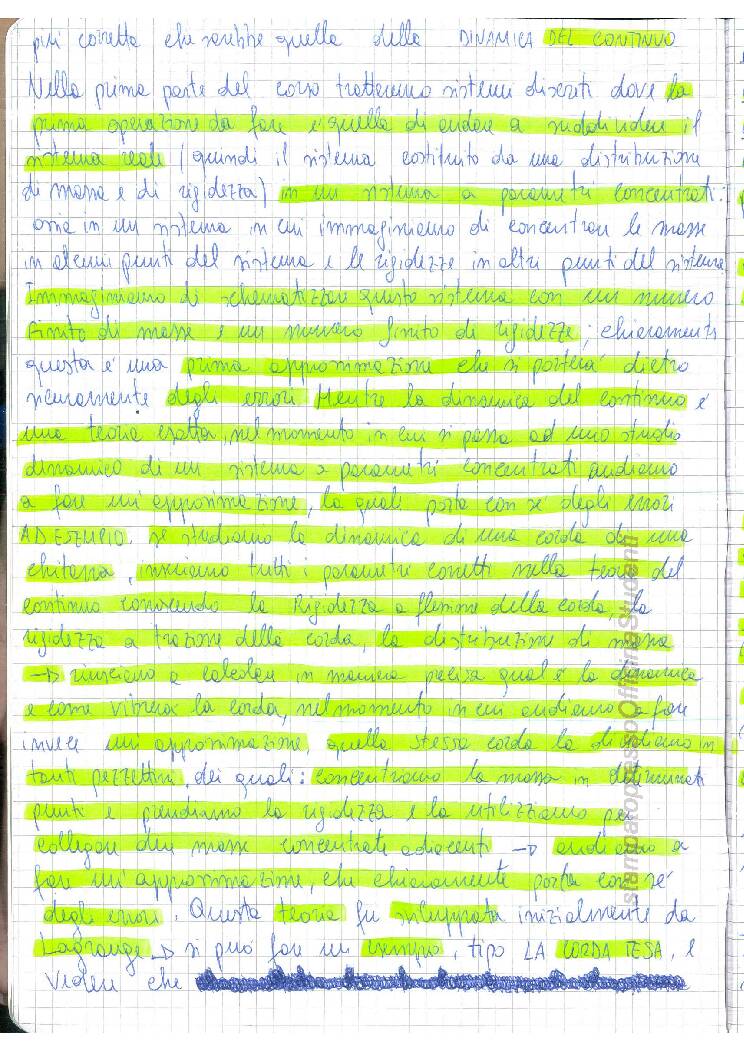 più corretta che sarebbe quella della DINAMICA DEL CONTINUO
Nella prima parte del corso tratteremo sistemi discreti dove la
prima operazione da fare è quella di andare a suddividere il
sistema reale (quindi il sistema costituito da una distribuzione
di massa e di rigidezza) in un sistema a parametri concentrati:
ossia in un sistema in cui immaginiamo di concentrare le masse
in alcuni punti del sistema e le rigidezze in altri punti del sistema
Immaginiamo di schematizzare questo sistema con un numero
finito di masse e un numero finito di rigidezze; chiaramente
questa è una prima approssimazione che si porterà dietro
sicuramente degli errori. Mentre la dinamica del continuo è
una teoria esatta, nel momento in cui si passa ad uno studio
dinamico di un sistema a parametri concentrati andiamo
a fare un'approssimazione, la quale porta con sé degli errori
AD ESEMPIO. se studiamo la dinamica di una corda di una
chitarra, inseriamo tutti i parametri corretti nella teoria del
continuo conoscendo la Rigidezza a flessione della corda, la
rigidezza a trazione della corda, la distribuzione di massa
→ riusciamo a calcolare in maniera precisa qual è la dinamica
e come vibrerà la corda, nel momento in cui andiamo a fare
invece un'approssimazione, quella stessa corda la dividiamo in
tanti pezzettini, dei quali: concentriamo la massa in determinati
punti e prendiamo la rigidezza e la utilizziamo per
collegare due masse concentrate adiacenti → andiamo a
fare un'approssimazione, che chiaramente porta con sé
degli errori. Questa teoria fu sviluppata inizialmente da
Lagrange → si può fare un esempio, tipo LA CORDA TESA, e
vedere che
stampatopressoOfficinaStudenti